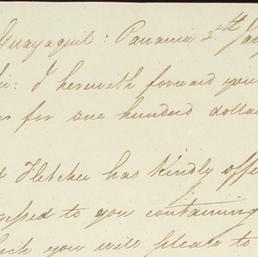 Guayaquil: Panama 3th Jan
: I herewith forward you
for one hundred dollar
Fletcher has kindly offe
essed to you containing
ich you will please to